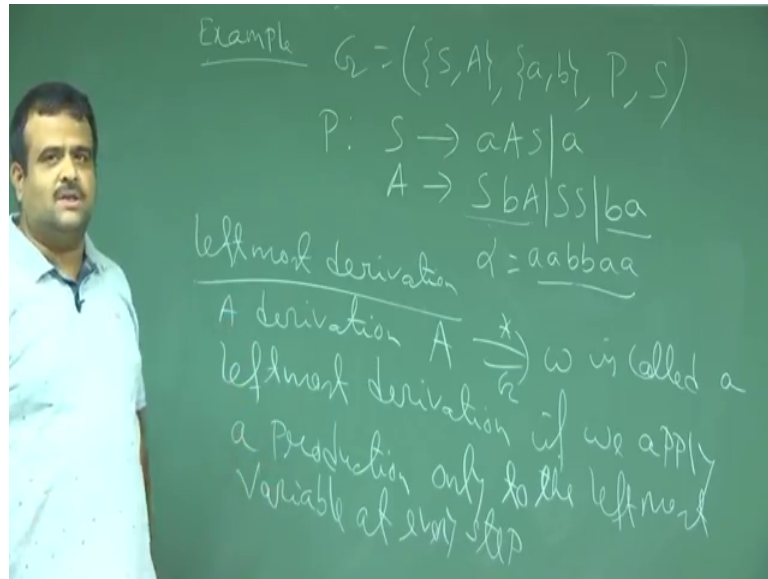 Example G = ({S, A}, {a,b}, P, S)
P: S → aAS|a
A → SbA|SS|ba
leftmost derivation α = aabbaa
A derivation A ⇒* G ω is called a
leftmost derivation if we apply
a production only to the leftmost
variable at every step